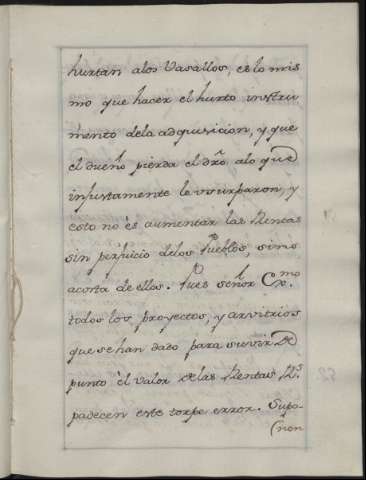 hurtan alos Vasallos, es lo mis
mo que hacer el hurto instru
mento dela adquisicion, y que
el dueño pierda el dr̃o. alo que
injustamente le vsurparon, y
esto no és aumentar las Rentas
sin perjuicio delos Pueblos, sino
acosta de ellos. Pues señor Exmo.
todos los proyectos, y arvitrios
que se han dado para suvir de
punto él valor de las Rentas Rs.
padecen este torpe error. Supo-
nen